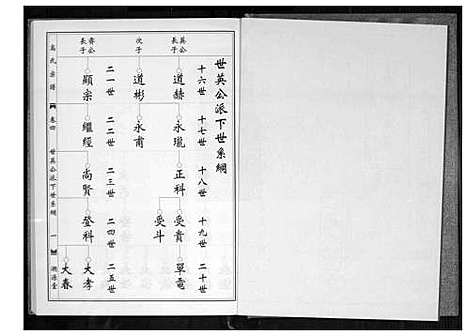 世英公派下世系綱
十六世
十七世
十八世
十九世
二十世
英公長子
道赫
永瓏
正科
受貴
單電
受斗
次子
道彬
永甫
二一世
二二世
二三世
二四世
二五世
齊公長子
顯宗
繼經
尚賢
登科
大孝
大春
氏宗譜
卷四
世英公派下世系綱
一
淵源堂